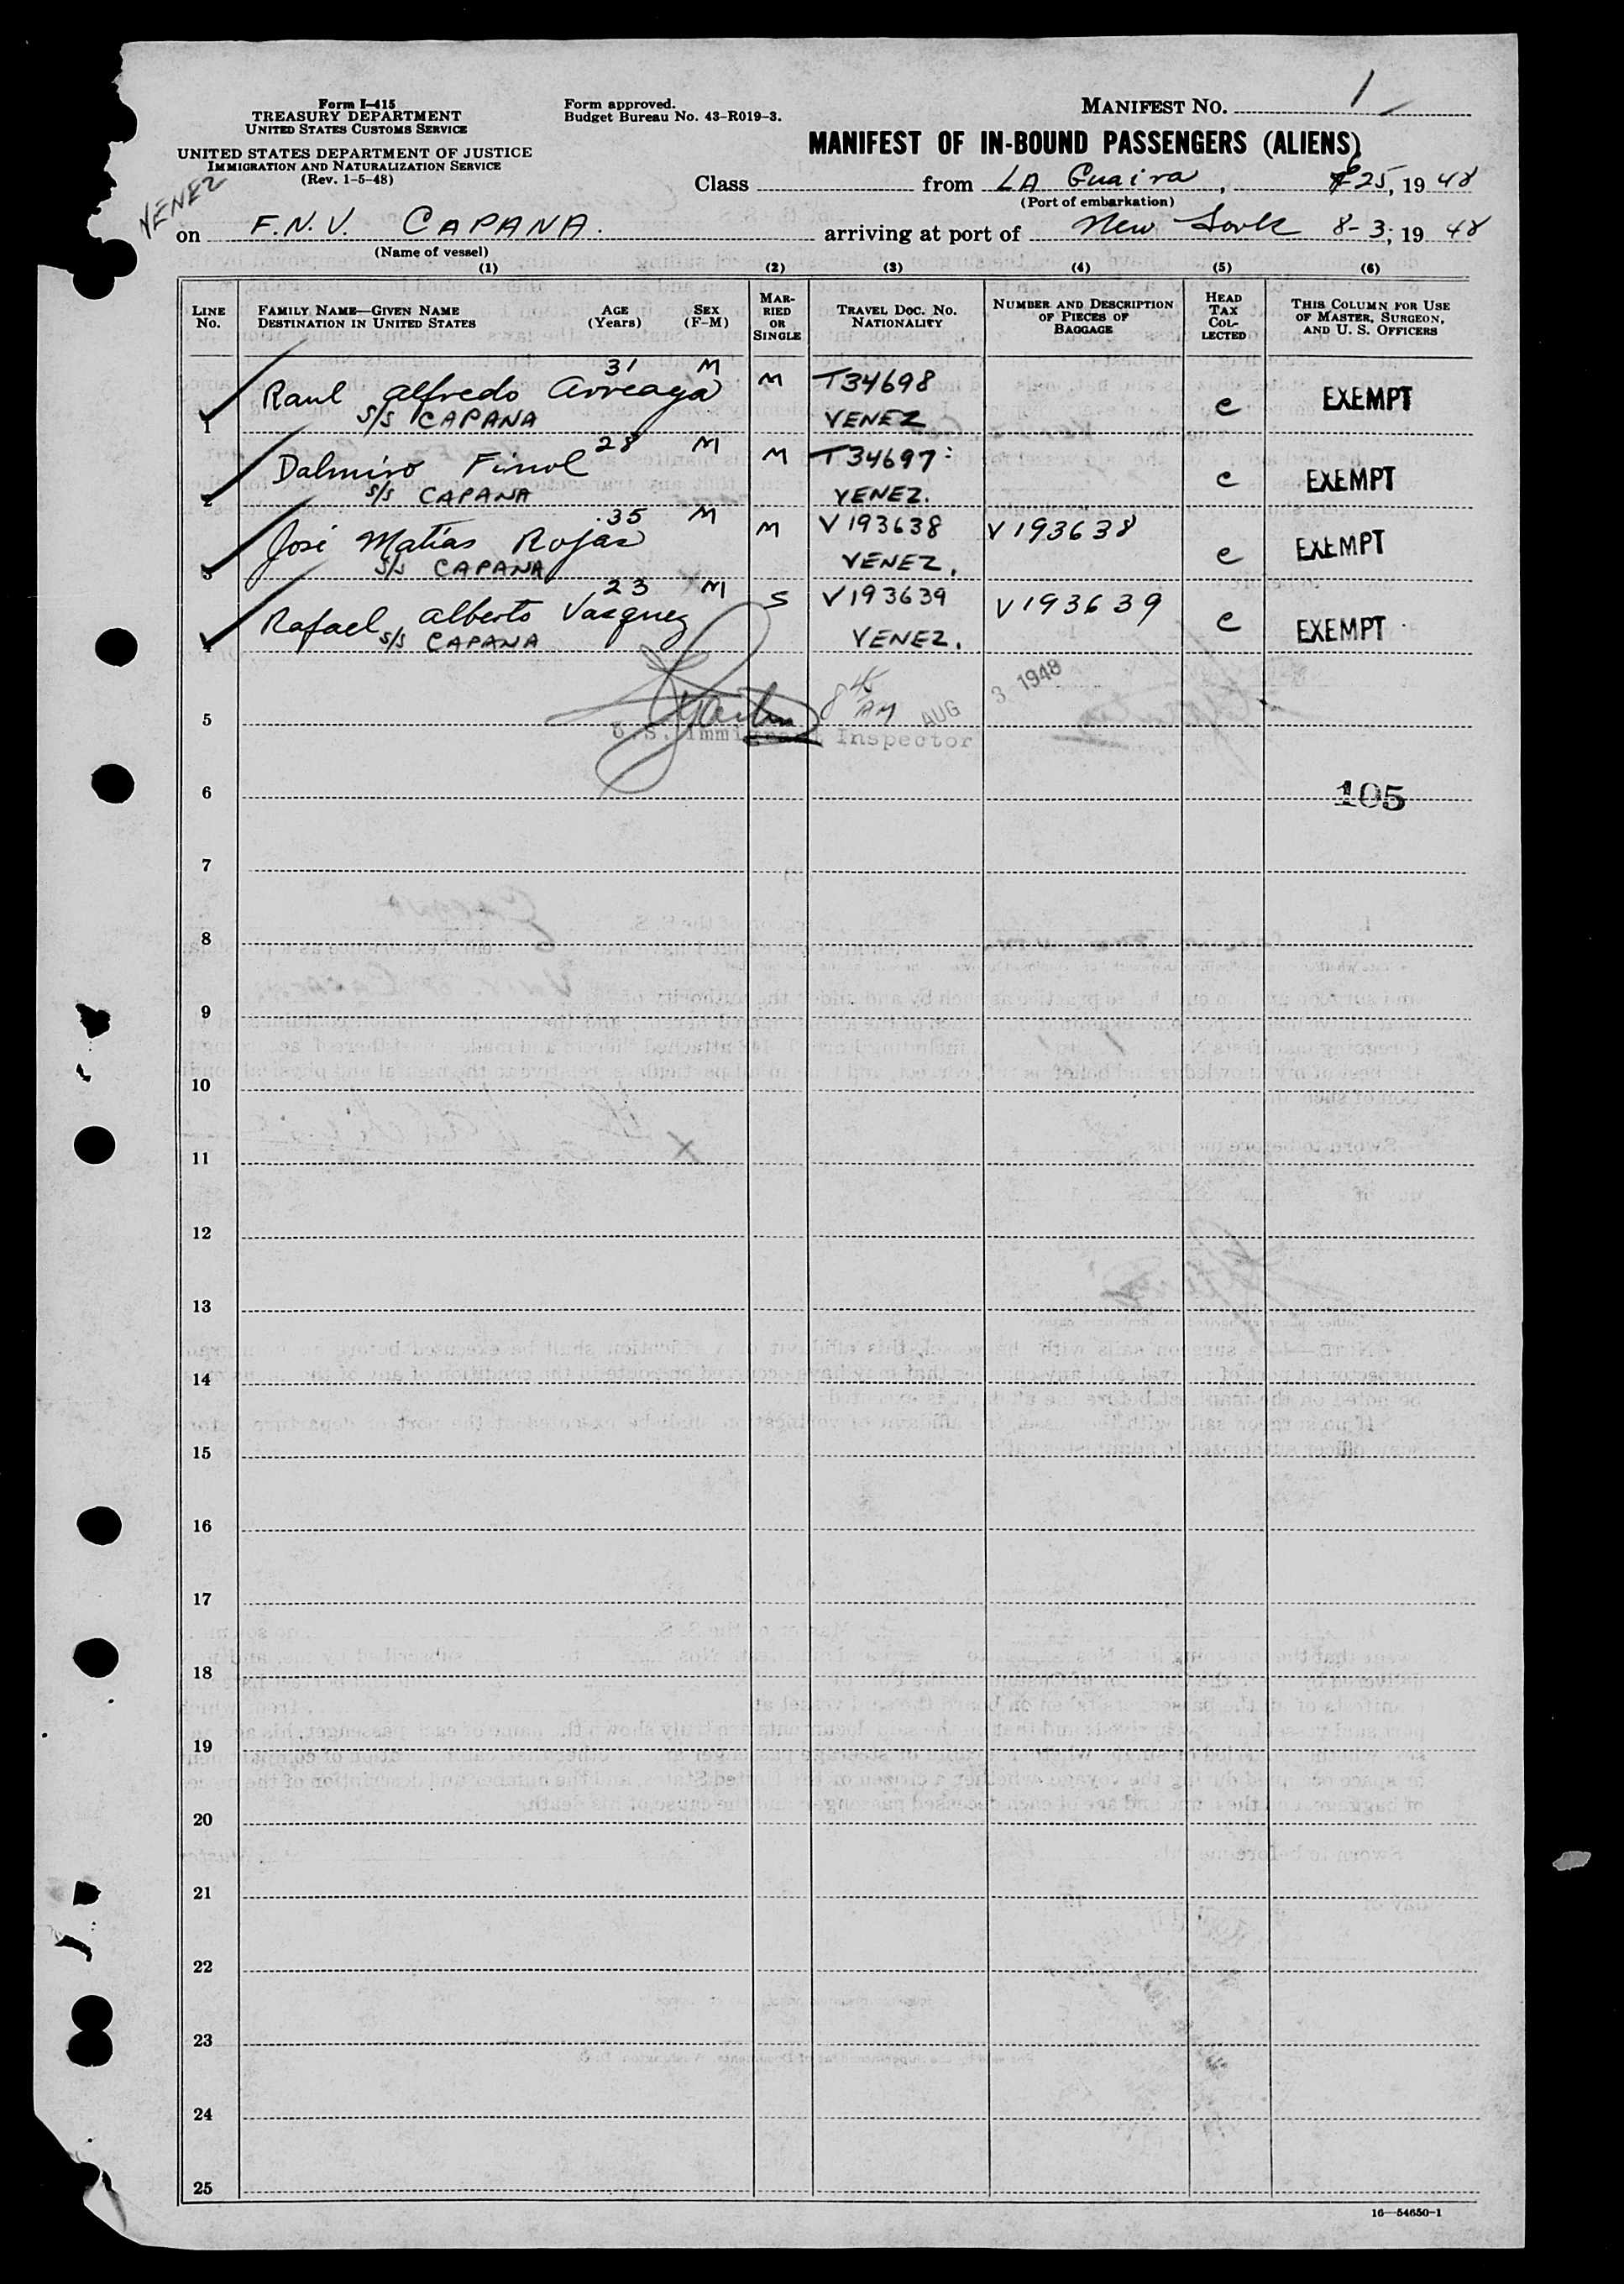 Form I-415
TREASURY DEPARTMENT
UNITED STATES CUSTOMS SERVICE
UNITED STATES DEPARTMENT OF JUSTICE
IMMIGRATION AND NATURALIZATION SERVICE
(Rev. 1-5-48)
Form approved.
Budget Bureau No. 43-R019-3.
MANIFEST NO. 1
MANIFEST OF IN-BOUND PASSENGERS (ALIENS)
Class from LA Guaira, 25, 19 48
(Port of embarkation)
VENEZ
on F.N.V. CAPANA. arriving at port of New York 8-3, 19 48
(Name of vessel)
(1) (2) (3) (4) (5) (6)
LINE No.
FAMILY NAME—GIVEN NAME
DESTINATION IN UNITED STATES
AGE (Years)
SEX (F-M)
MARRIED OR SINGLE
TRAVEL DOC. NO. NATIONALITY
NUMBER AND DESCRIPTION OF PIECES OF BAGGAGE
HEAD TAX COLLECTED
THIS COLUMN FOR USE OF MASTER, SURGEON, AND U. S. OFFICERS
31 M
1 Raul Alfredo Arreaga M T34698 e EXEMPT
S/S CAPANA VENEZ
28 M
2 Dalmiro Finol M T34697 e EXEMPT
S/S CAPANA VENEZ.
35 M
3 José Matías Rojas M V193638 V193638 e EXEMPT
S/S CAPANA VENEZ.
23 M
4 Rafael Alberto Vasquez S V193639 V193639 e EXEMPT
S/S CAPANA VENEZ.
AM AUG 3 1948
5
U.S. Immigrant Inspector
6 105
7
8
9
10
11
12
13
14
15
16
17
18
19
20
21
22
23
24
25
16—54650-1